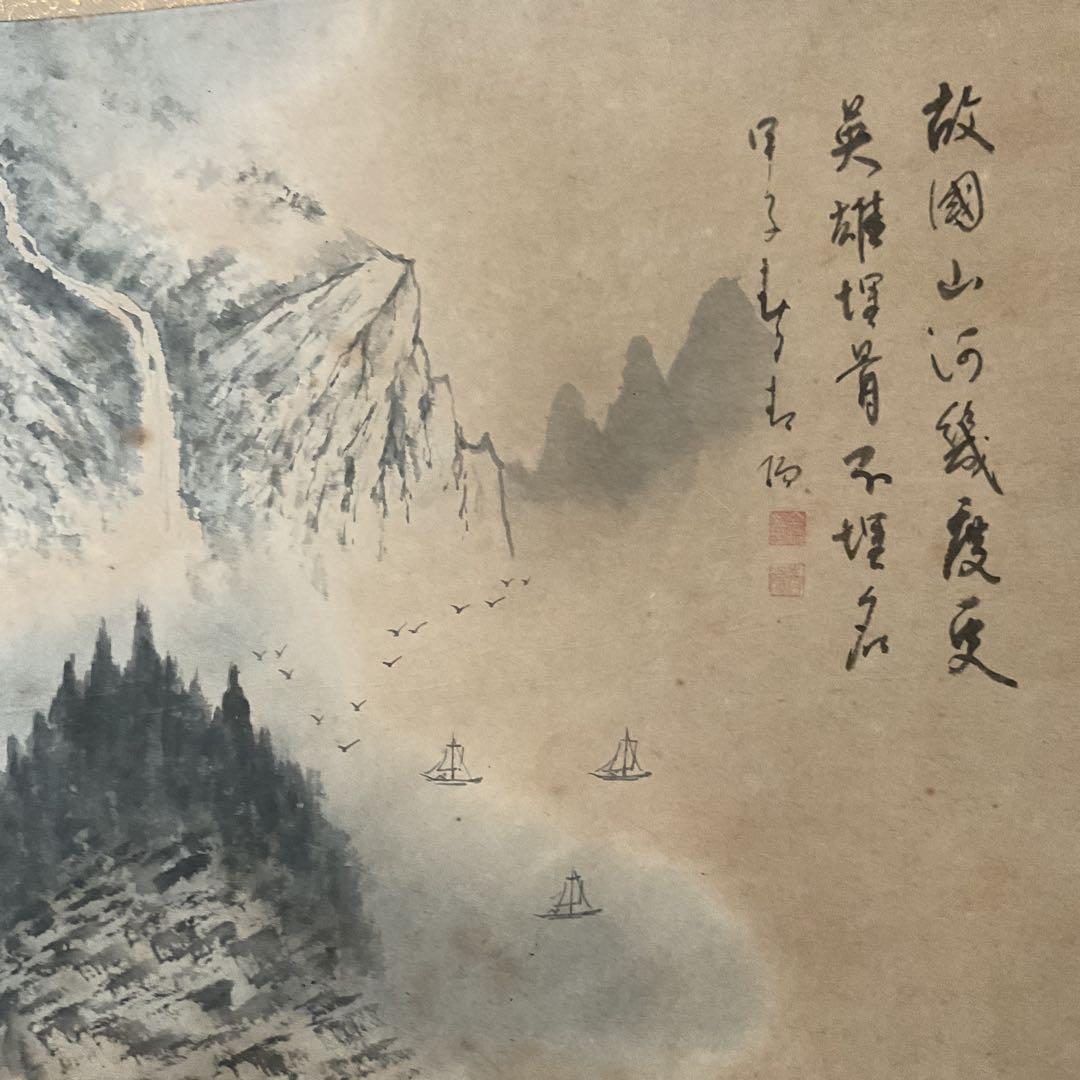 故國山河幾度更
英雄埋骨不埋名
甲子春